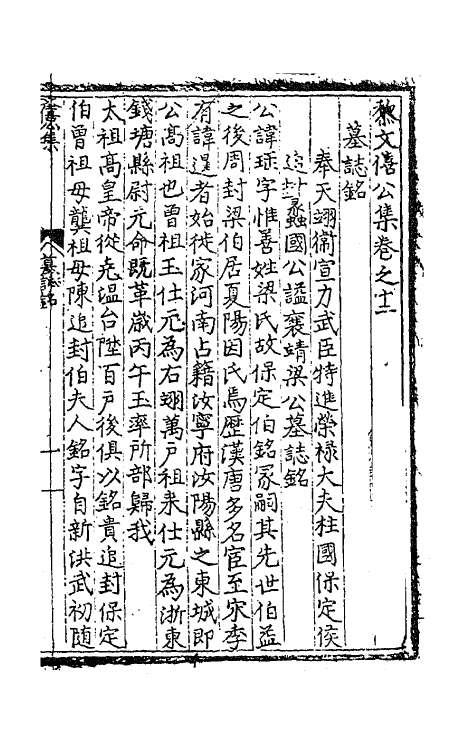 黎文僖公集卷之十二
墓誌銘
奉天翊衛宣力武臣特進榮禄大夫柱國保定侯
追封蠡國公謚襄靖梁公墓誌銘
公諱珤字惟善姓梁氏故保定伯銘冢嗣其先世伯益
之後周封梁伯居夏陽因氏焉歷漢唐多名宦至宋季
有諱暹者始徙家河南占籍汝寧府汝陽縣之東城即
公高祖也曾祖玉仕元為右翊萬戶祖来仕元為浙東
錢塘縣尉元命既革歲丙午玉率所部歸我
太祖高皇帝從克温台陞百戶後俱以銘貴追封保定
伯曾祖母龔祖母陳追封伯夫人銘字自新洪武初随
僖公集
墓誌銘
一